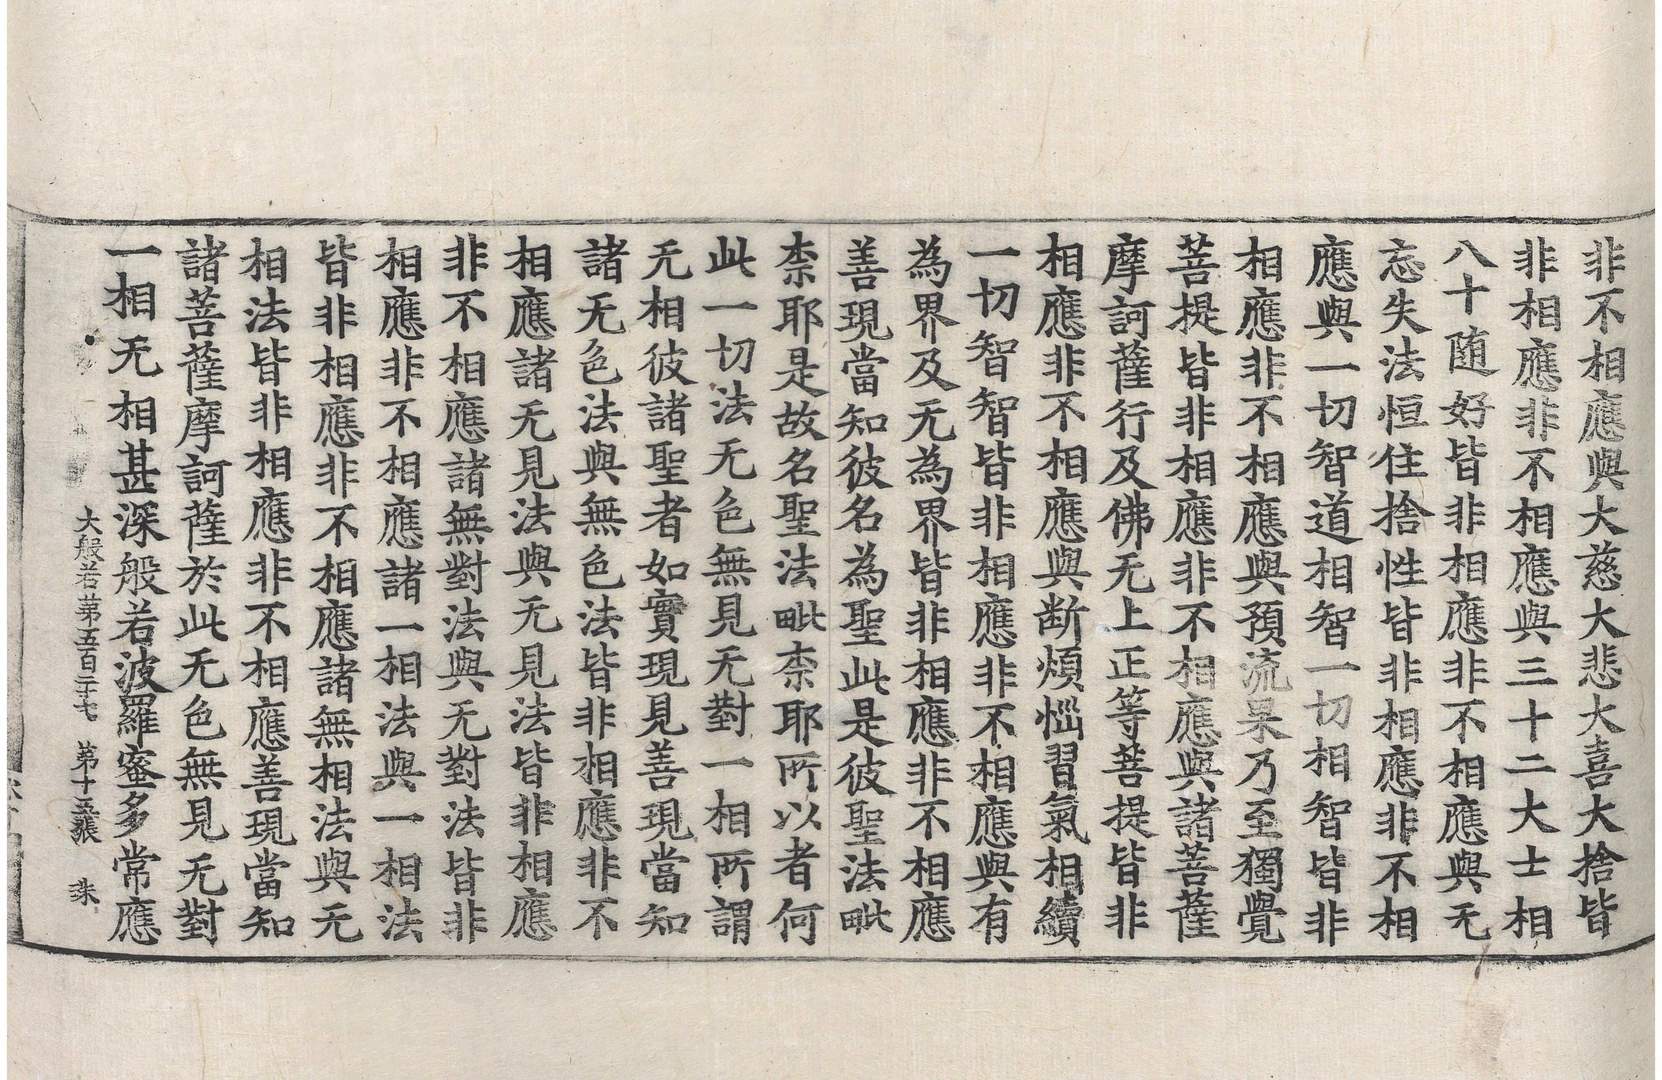 非不相應與大慈大悲大喜大捨皆
非相應非不相應與三十二大士相
八十随好皆非相應非不相應與无
忘失法恒住捨性皆非相應非不相
應與一切智道相智一切相智皆非
相應非不相應與預流果乃至獨覺
菩提皆非相應非不相應與諸菩薩
摩訶薩行及佛无上正等菩提皆非
相應非不相應與断煩惱習氣相續
一切智智皆非相應非不相應與有
為界及无為界皆非相應非不相應
善現當知彼名為聖此是彼聖法毗
柰耶是故名聖法毗柰耶所以者何
此一切法无色無見无對一相所謂
无相彼諸聖者如實現見善現當知
諸无色法與無色法皆非相應非不
相應諸无見法與无見法皆非相應
非不相應諸無對法與无對法皆非
相應非不相應諸一相法與一相法
皆非相應非不相應諸無相法與无
相法皆非相應非不相應善現當知
諸菩薩摩訶薩於此无色無見无對
一相无相甚深般若波羅蜜多常應
大般若苐五百二十七 第十五張